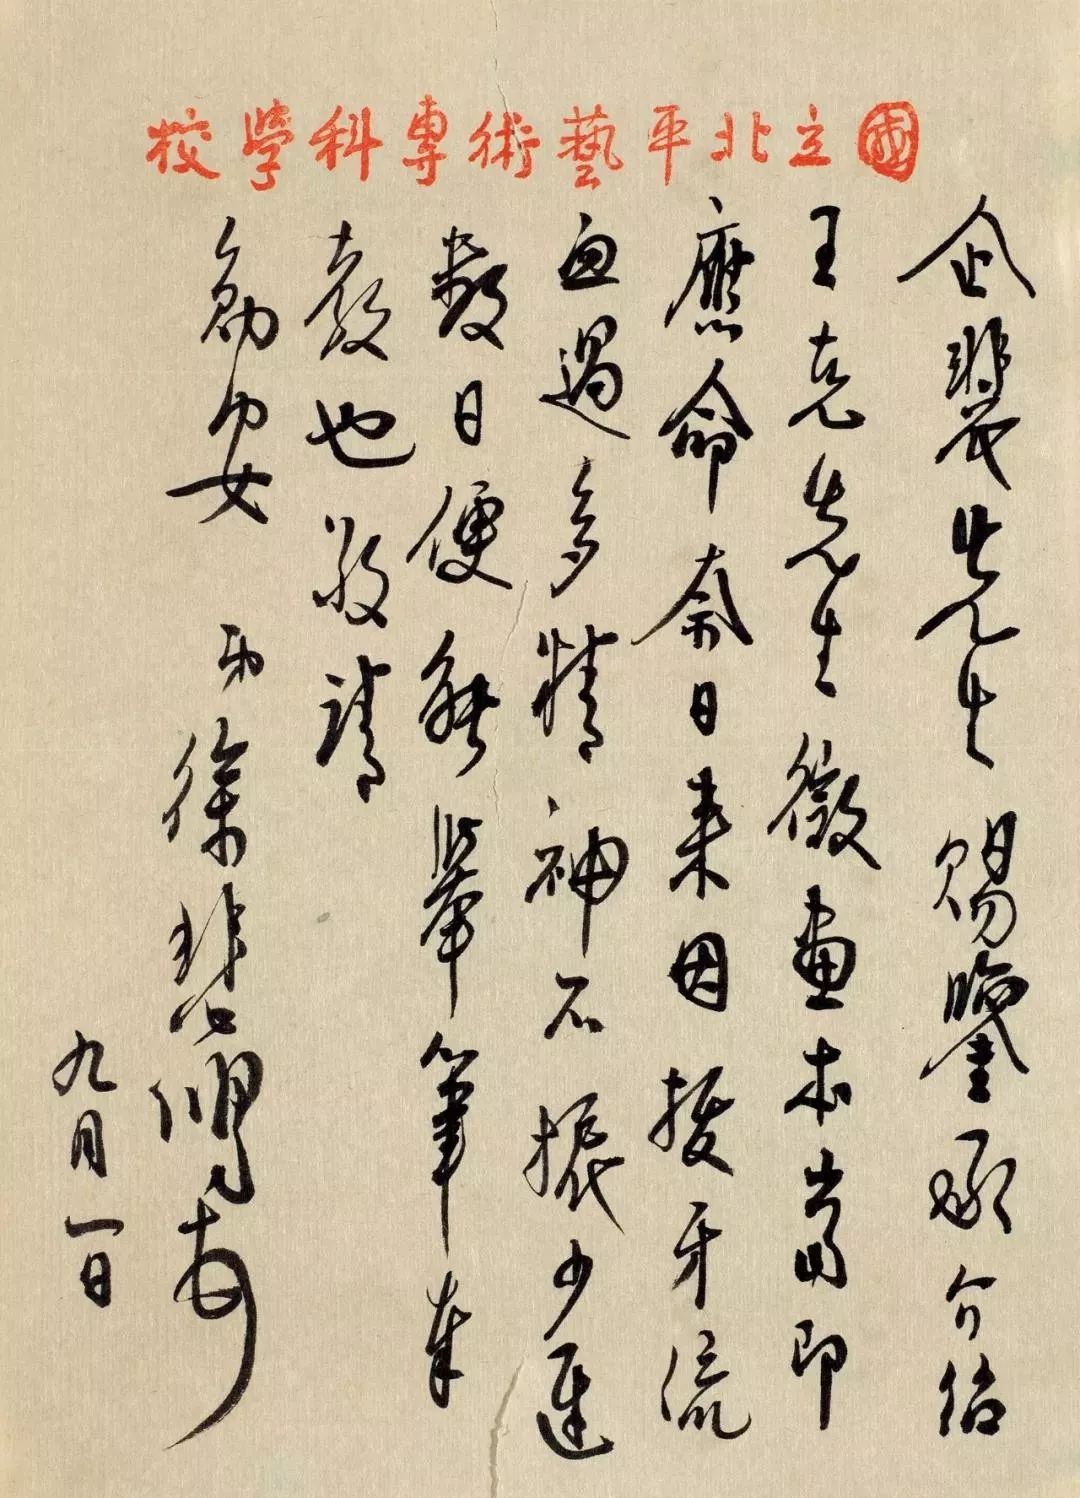 國立北平藝術專科學校
企裴先生賜鑒承介紹
王克先生徵畫本當即
應命奈日來因拔牙流
血過多精神不振少遲
數日便能舉筆奉
教也敬請
勛安 弟徐悲鴻
九月一日